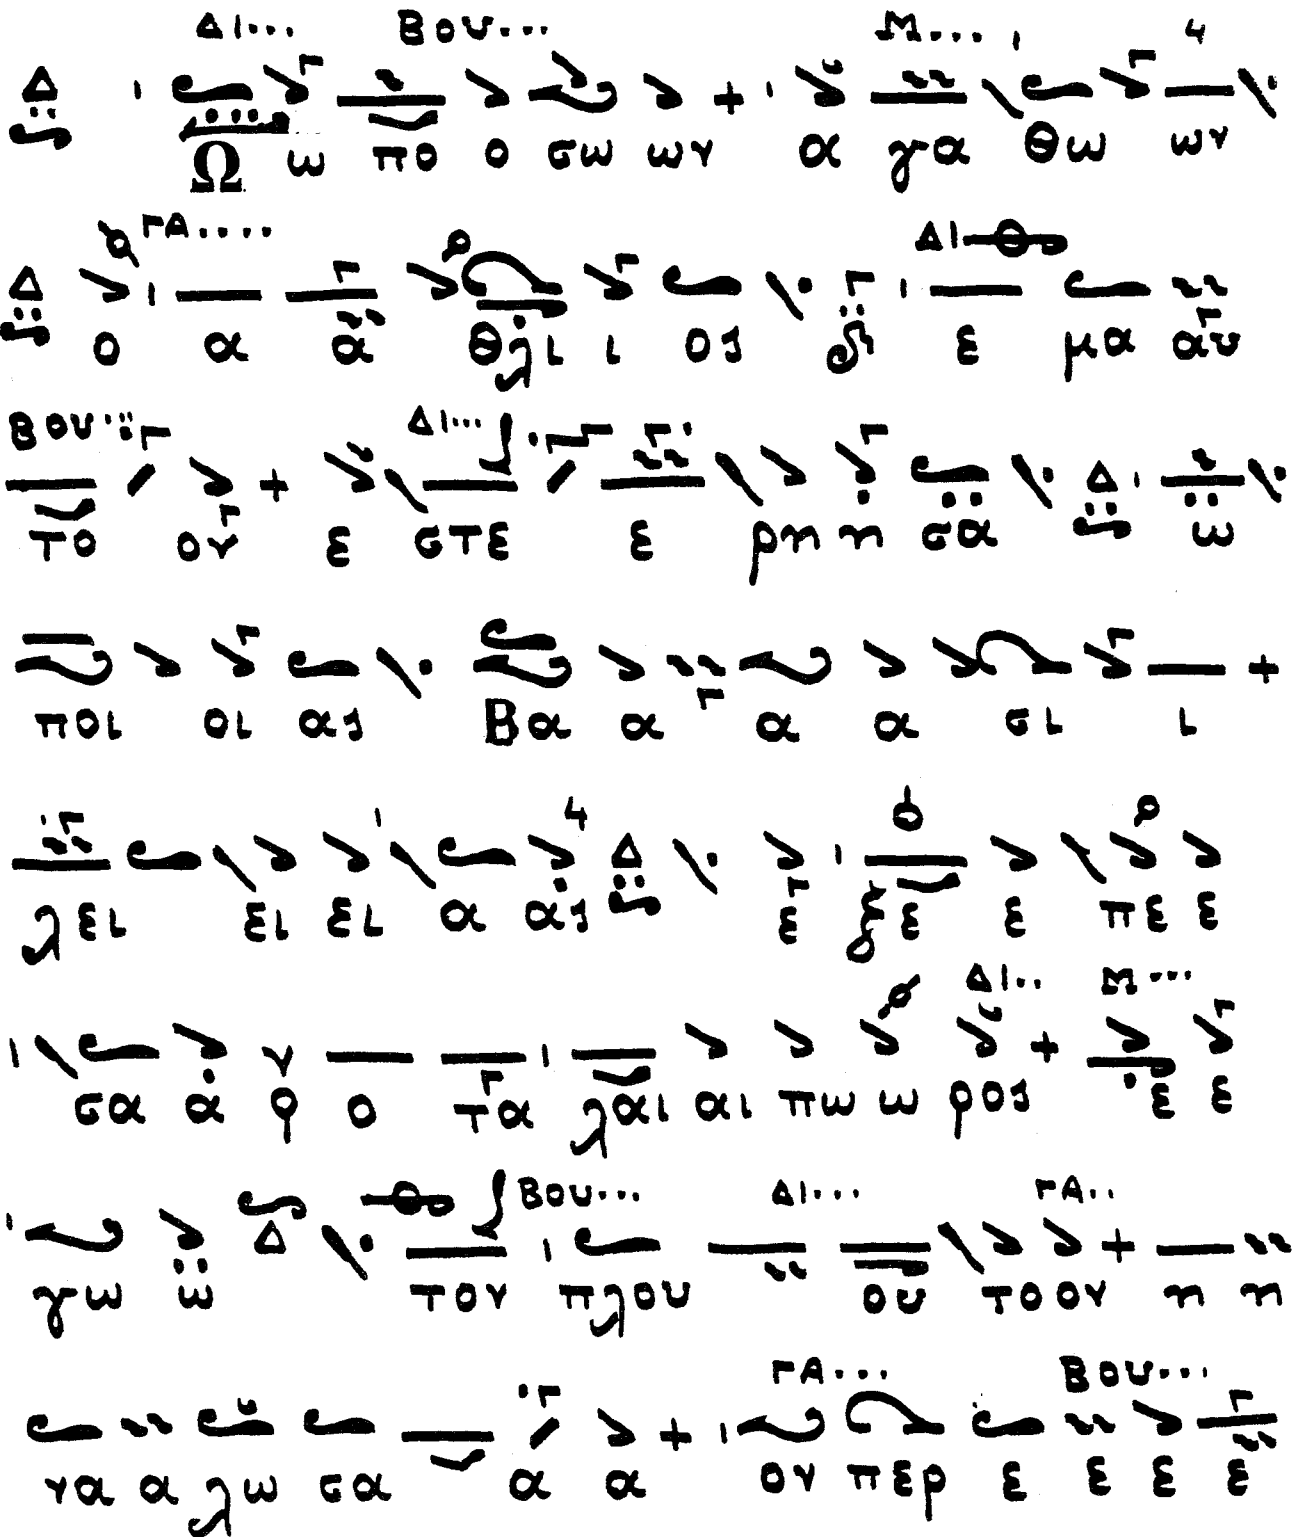 Δι... Βου... Μ... 4
Ω ω πο ο σω ων α γα θω ων
ΓΑ.... Δι
ο α α θλι ι ος ε μα αυ
Βου... Δι...
το ον ε στε ε ρη η σα ω
ποι οι ας Βα α α α σι ι
4
λει ει ει α ας ε ξε ε πε ε
Δι.. Μ...
σα α ρ ο τα λαι αι πω ω ρος ε ε
Βου... Δι... ΓΑ..
γω ω τον πλου ου το ον η η
ΓΑ... Βου...
να α λω σα α α ον περ ε ε ε ε